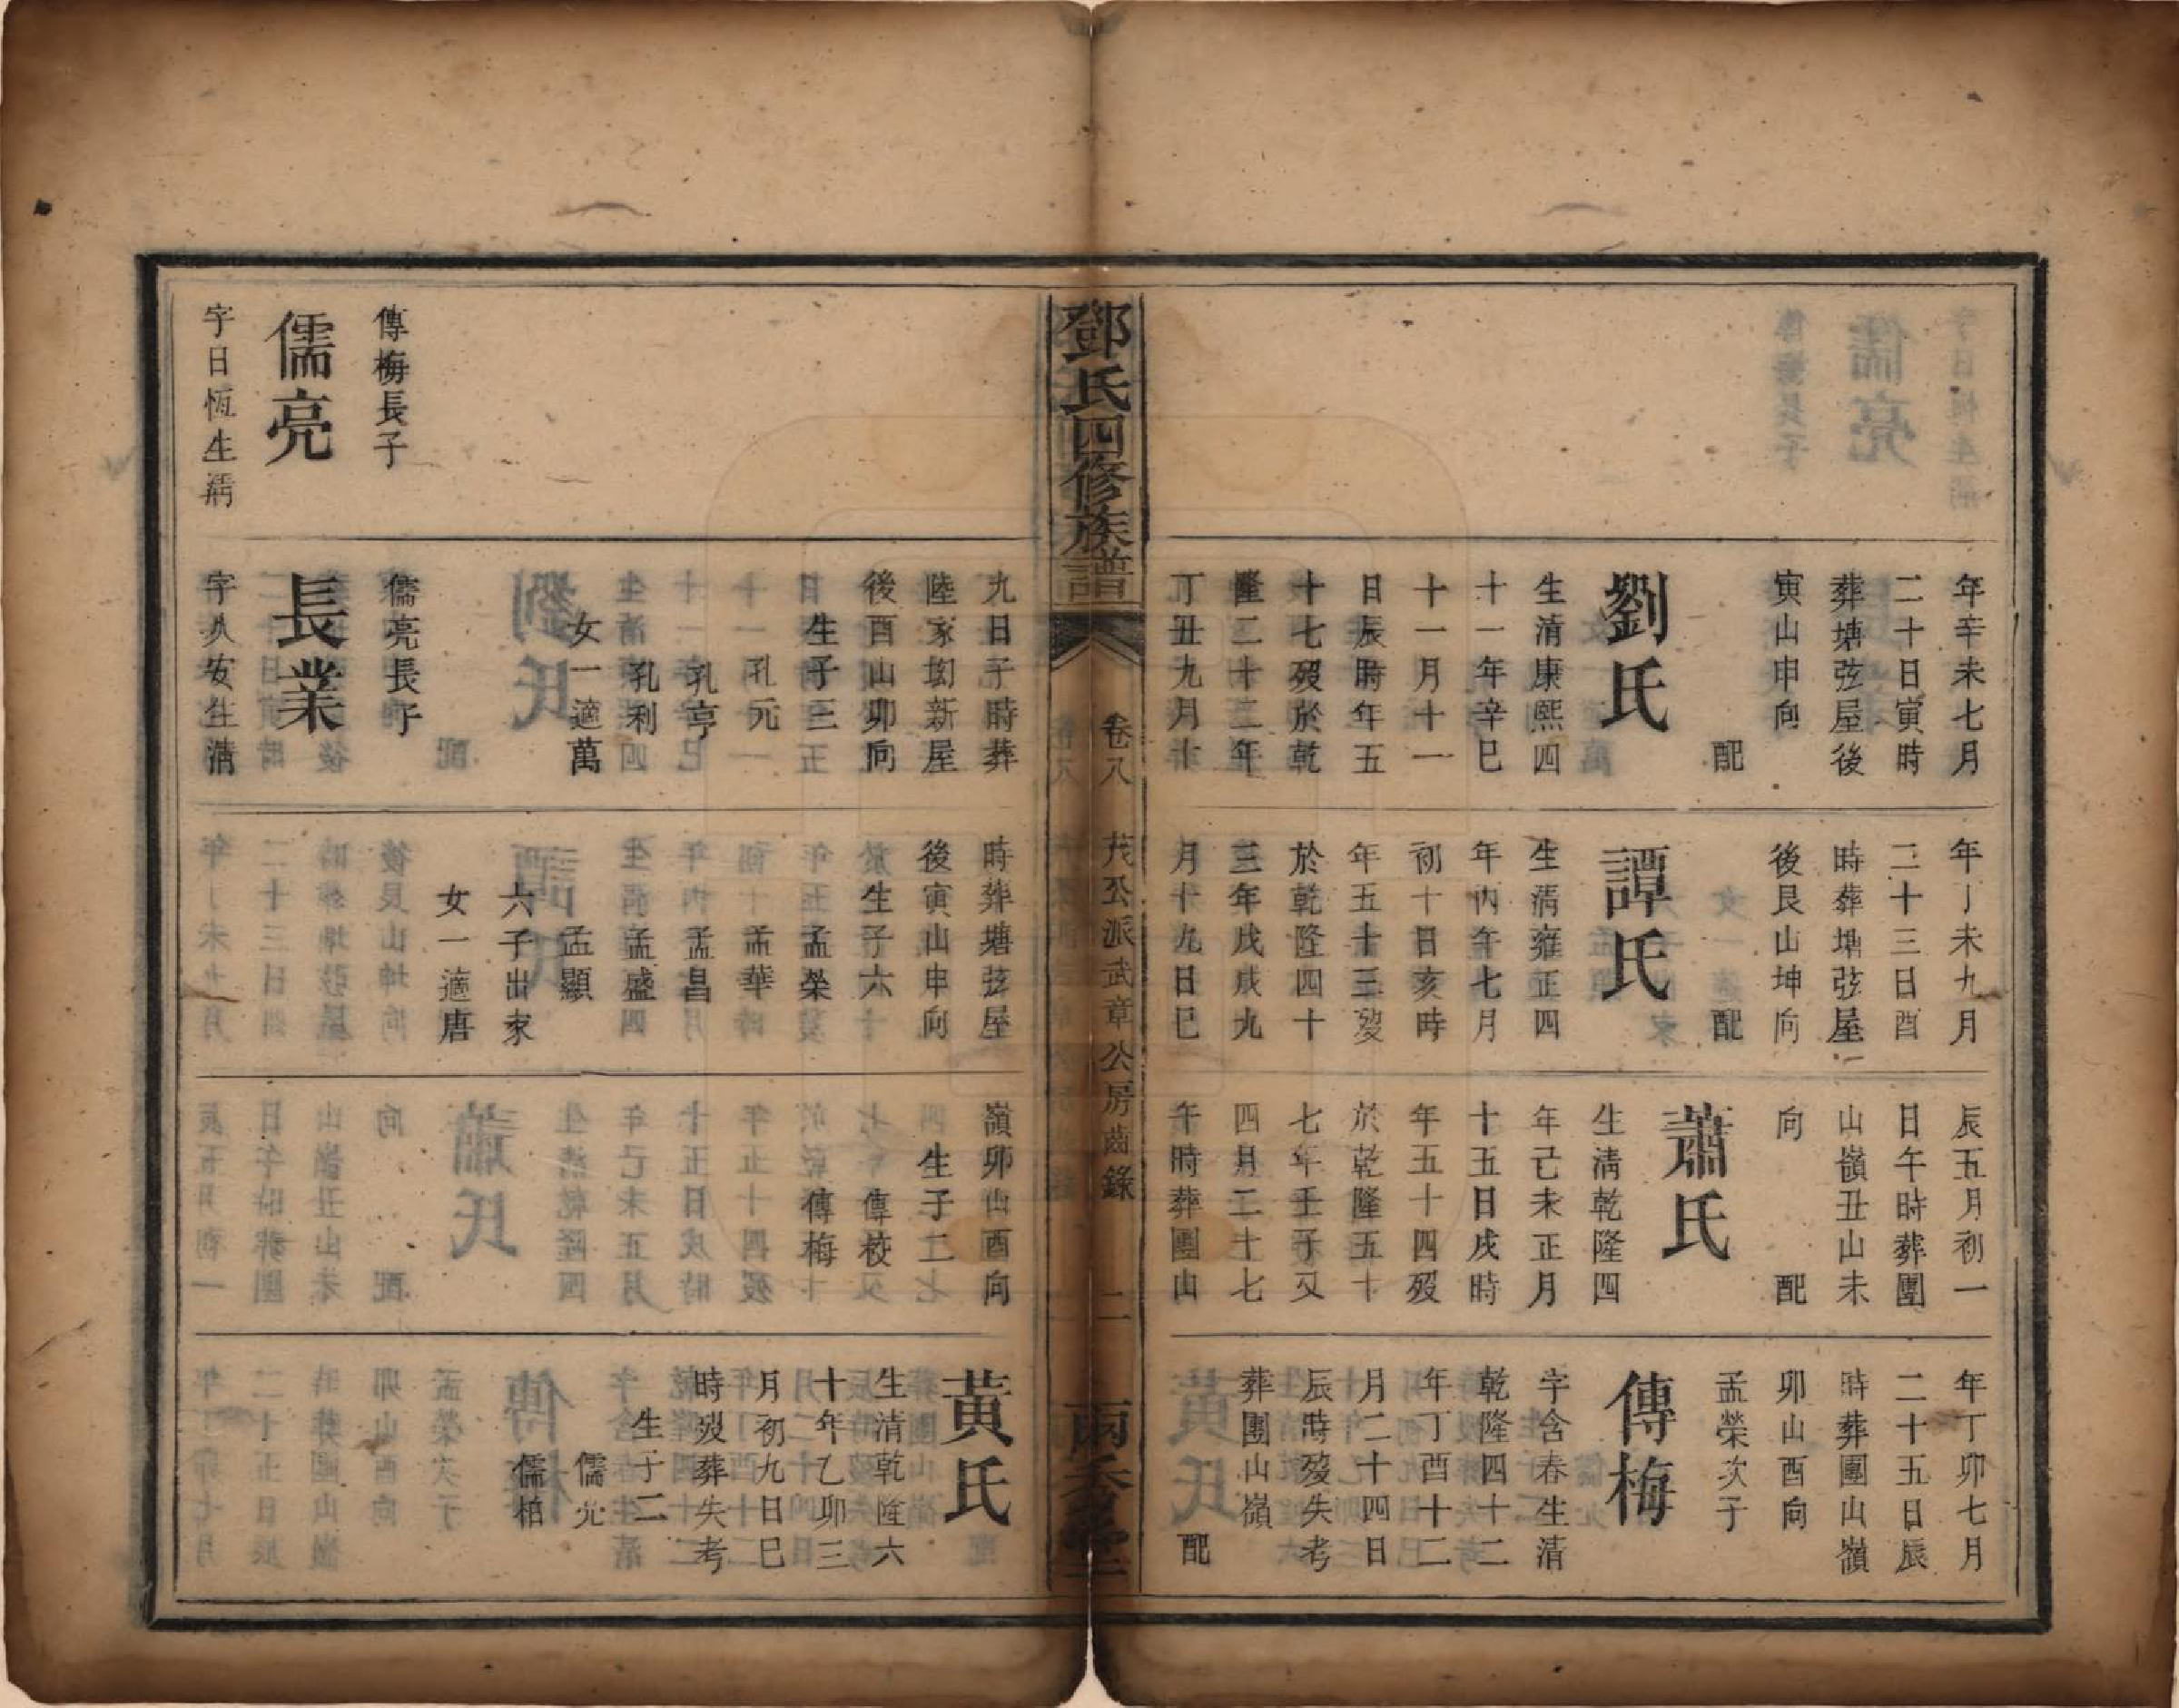 年辛未七月
二十日寅時
葬塘弦屋後
寅山申向
配
劉氏
生清康熙四
十一年辛巳
十一月十一
日辰時年五
十七歿於乾
隆二十二年
丁丑九月十
年丁未九月
二十三日酉
時葬塘弦屋
後艮山坤向
配
譚氏
生清雍正四
年丙午七月
初十日亥時
年五十三歿
於乾隆四十
三年戊戌九
月十九日巳
辰五月初一
日午時葬團
山嶺丑山未
向
配
蕭氏
生淸乾隆四
年己未正月
十五日戌時
年五十四歿
於乾隆五十
七年壬子又
四月二十七
午時葬團山
年丁卯七月
二十五日辰
時葬團山嶺
卯山酉向
孟榮次子
傳梅
字含春生清
乾隆四十二
年丁酉十二
月二十四日
辰時歿失考
葬團山嶺
配
鄧氏四修族譜
卷八
茂公派武章公房齒錄
二
南禾堂
九日子時葬
陸家坳新屋
後酉山卯向
生子三
孔元
孔亨
孔利
女一適萬
儒亮長子
長業
字久安生清
時葬塘弦屋
後寅山申向
生子六
孟榮
孟華
孟昌
孟盛
孟顯
六子出家
女一適唐
嶺卯山酉向
生子二
傳校
傳梅
黃氏
生清乾隆六
十年乙卯三
月初九日巳
時歿葬失考
生子二
儒光
儒柏
傳梅長子
儒亮
字日恆生清